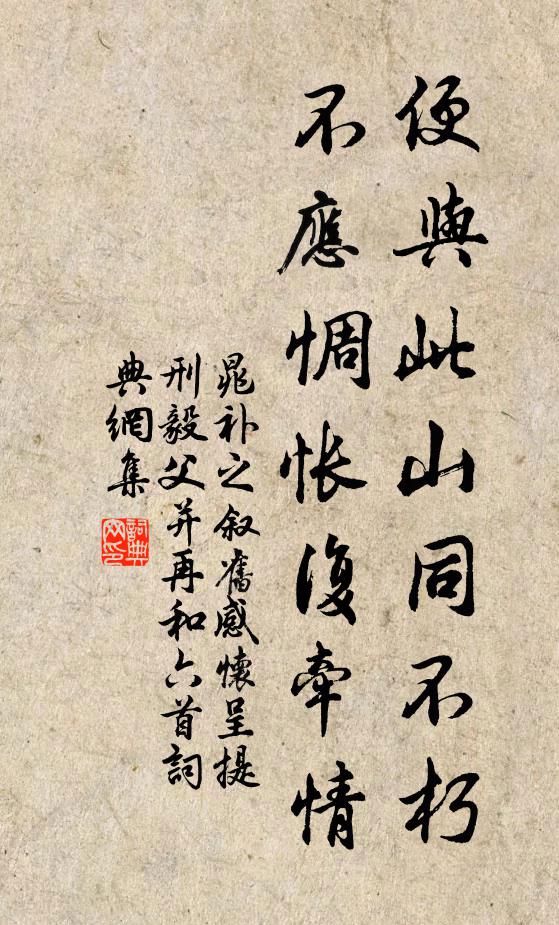 便與此山同不朽
不應惆悵復牽情
晁补之叙舊感懷呈提
刑毅父并再和六首詞
典網集
詞典
网印